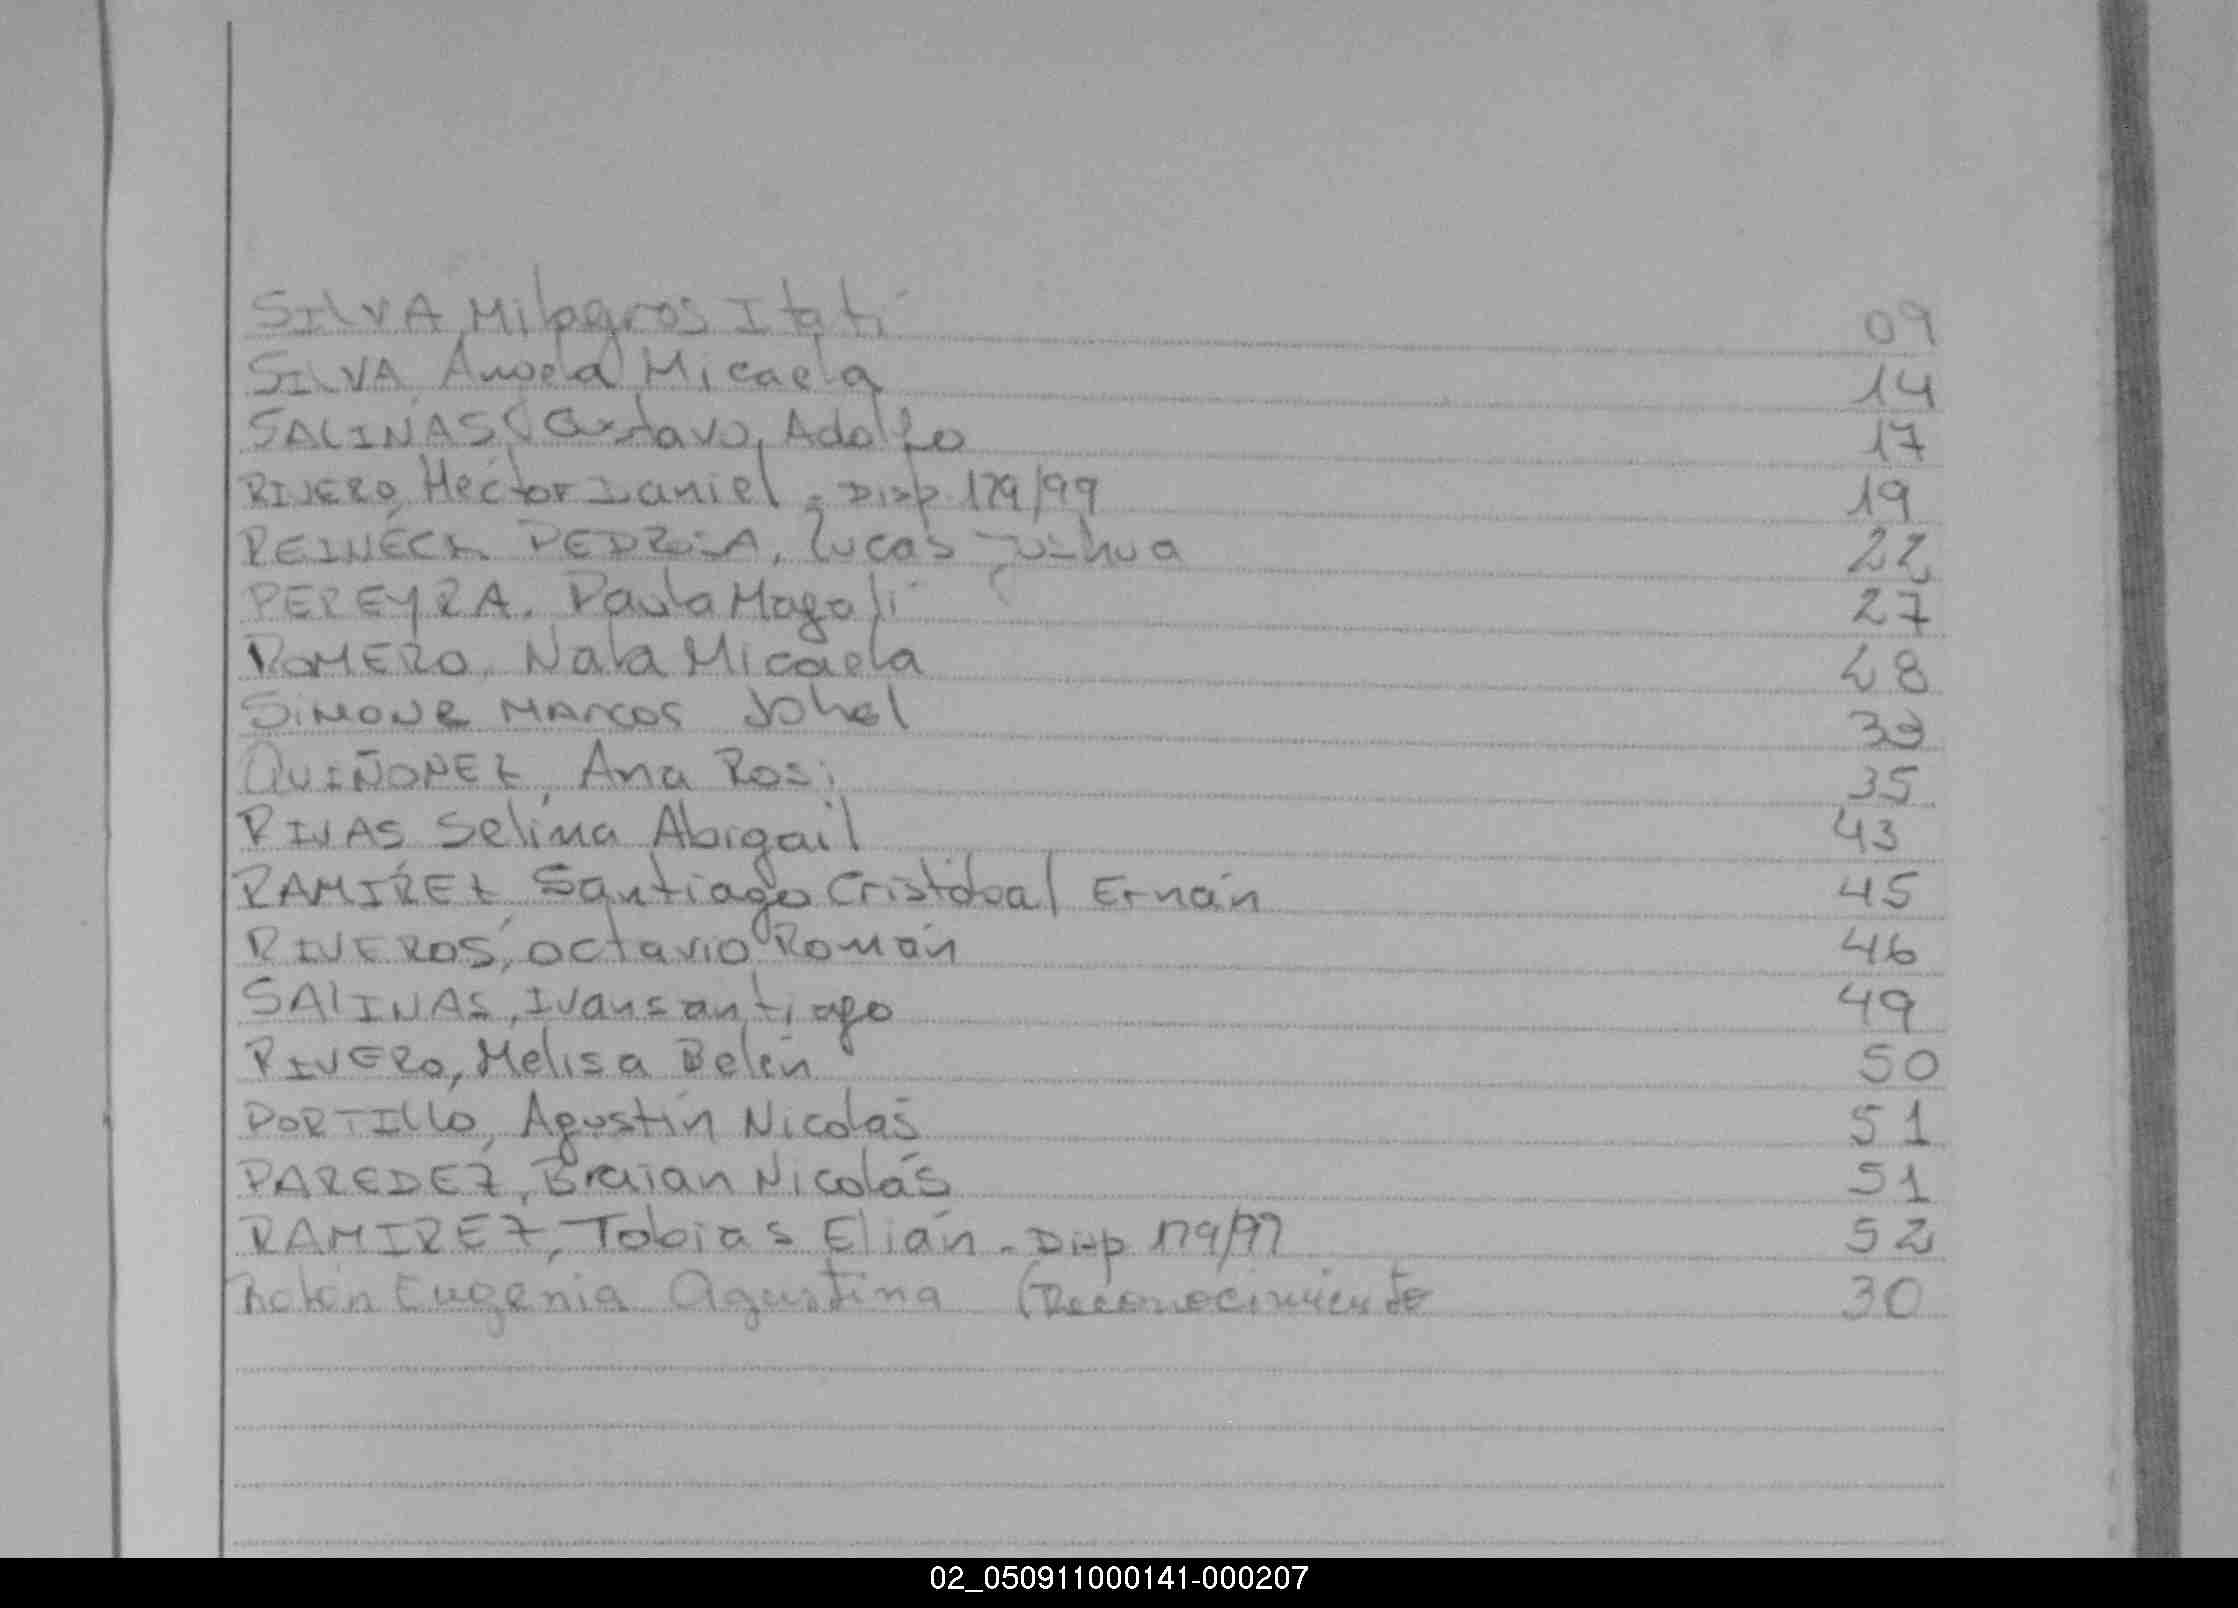 SILVA, Milagros Itatí 09
SILVA, Ángela Micaela 14
SALINAS, Gustavo, Adolfo 17
RIVERO, Héctor Daniel - Disp 179/99 19
REINECK PEDROZA, Lucas Joshua 22
PEREYRA, Paula Magalí 27
ROMERO, Nala Micaela 28
SIMONE MARCOS Johel 33
QUIÑONEZ, Ana Rosi 35
RIVAS Selina Abigail 43
RAMÍREZ, Santiago Cristóbal Ernán 45
RIVEROS, Octavio Román 46
SALINAS, Ivan Santiago 49
RIVERO, Melisa Belén 50
PORTILLO, Agustín Nicolás 51
PAREDEZ, Braian Nicolás 51
RAMIREZ, Tobias Elián - Disp 179/99 52
Rolón Eugenia Agustina (Reconocimiento 30
02_050911000141-000207